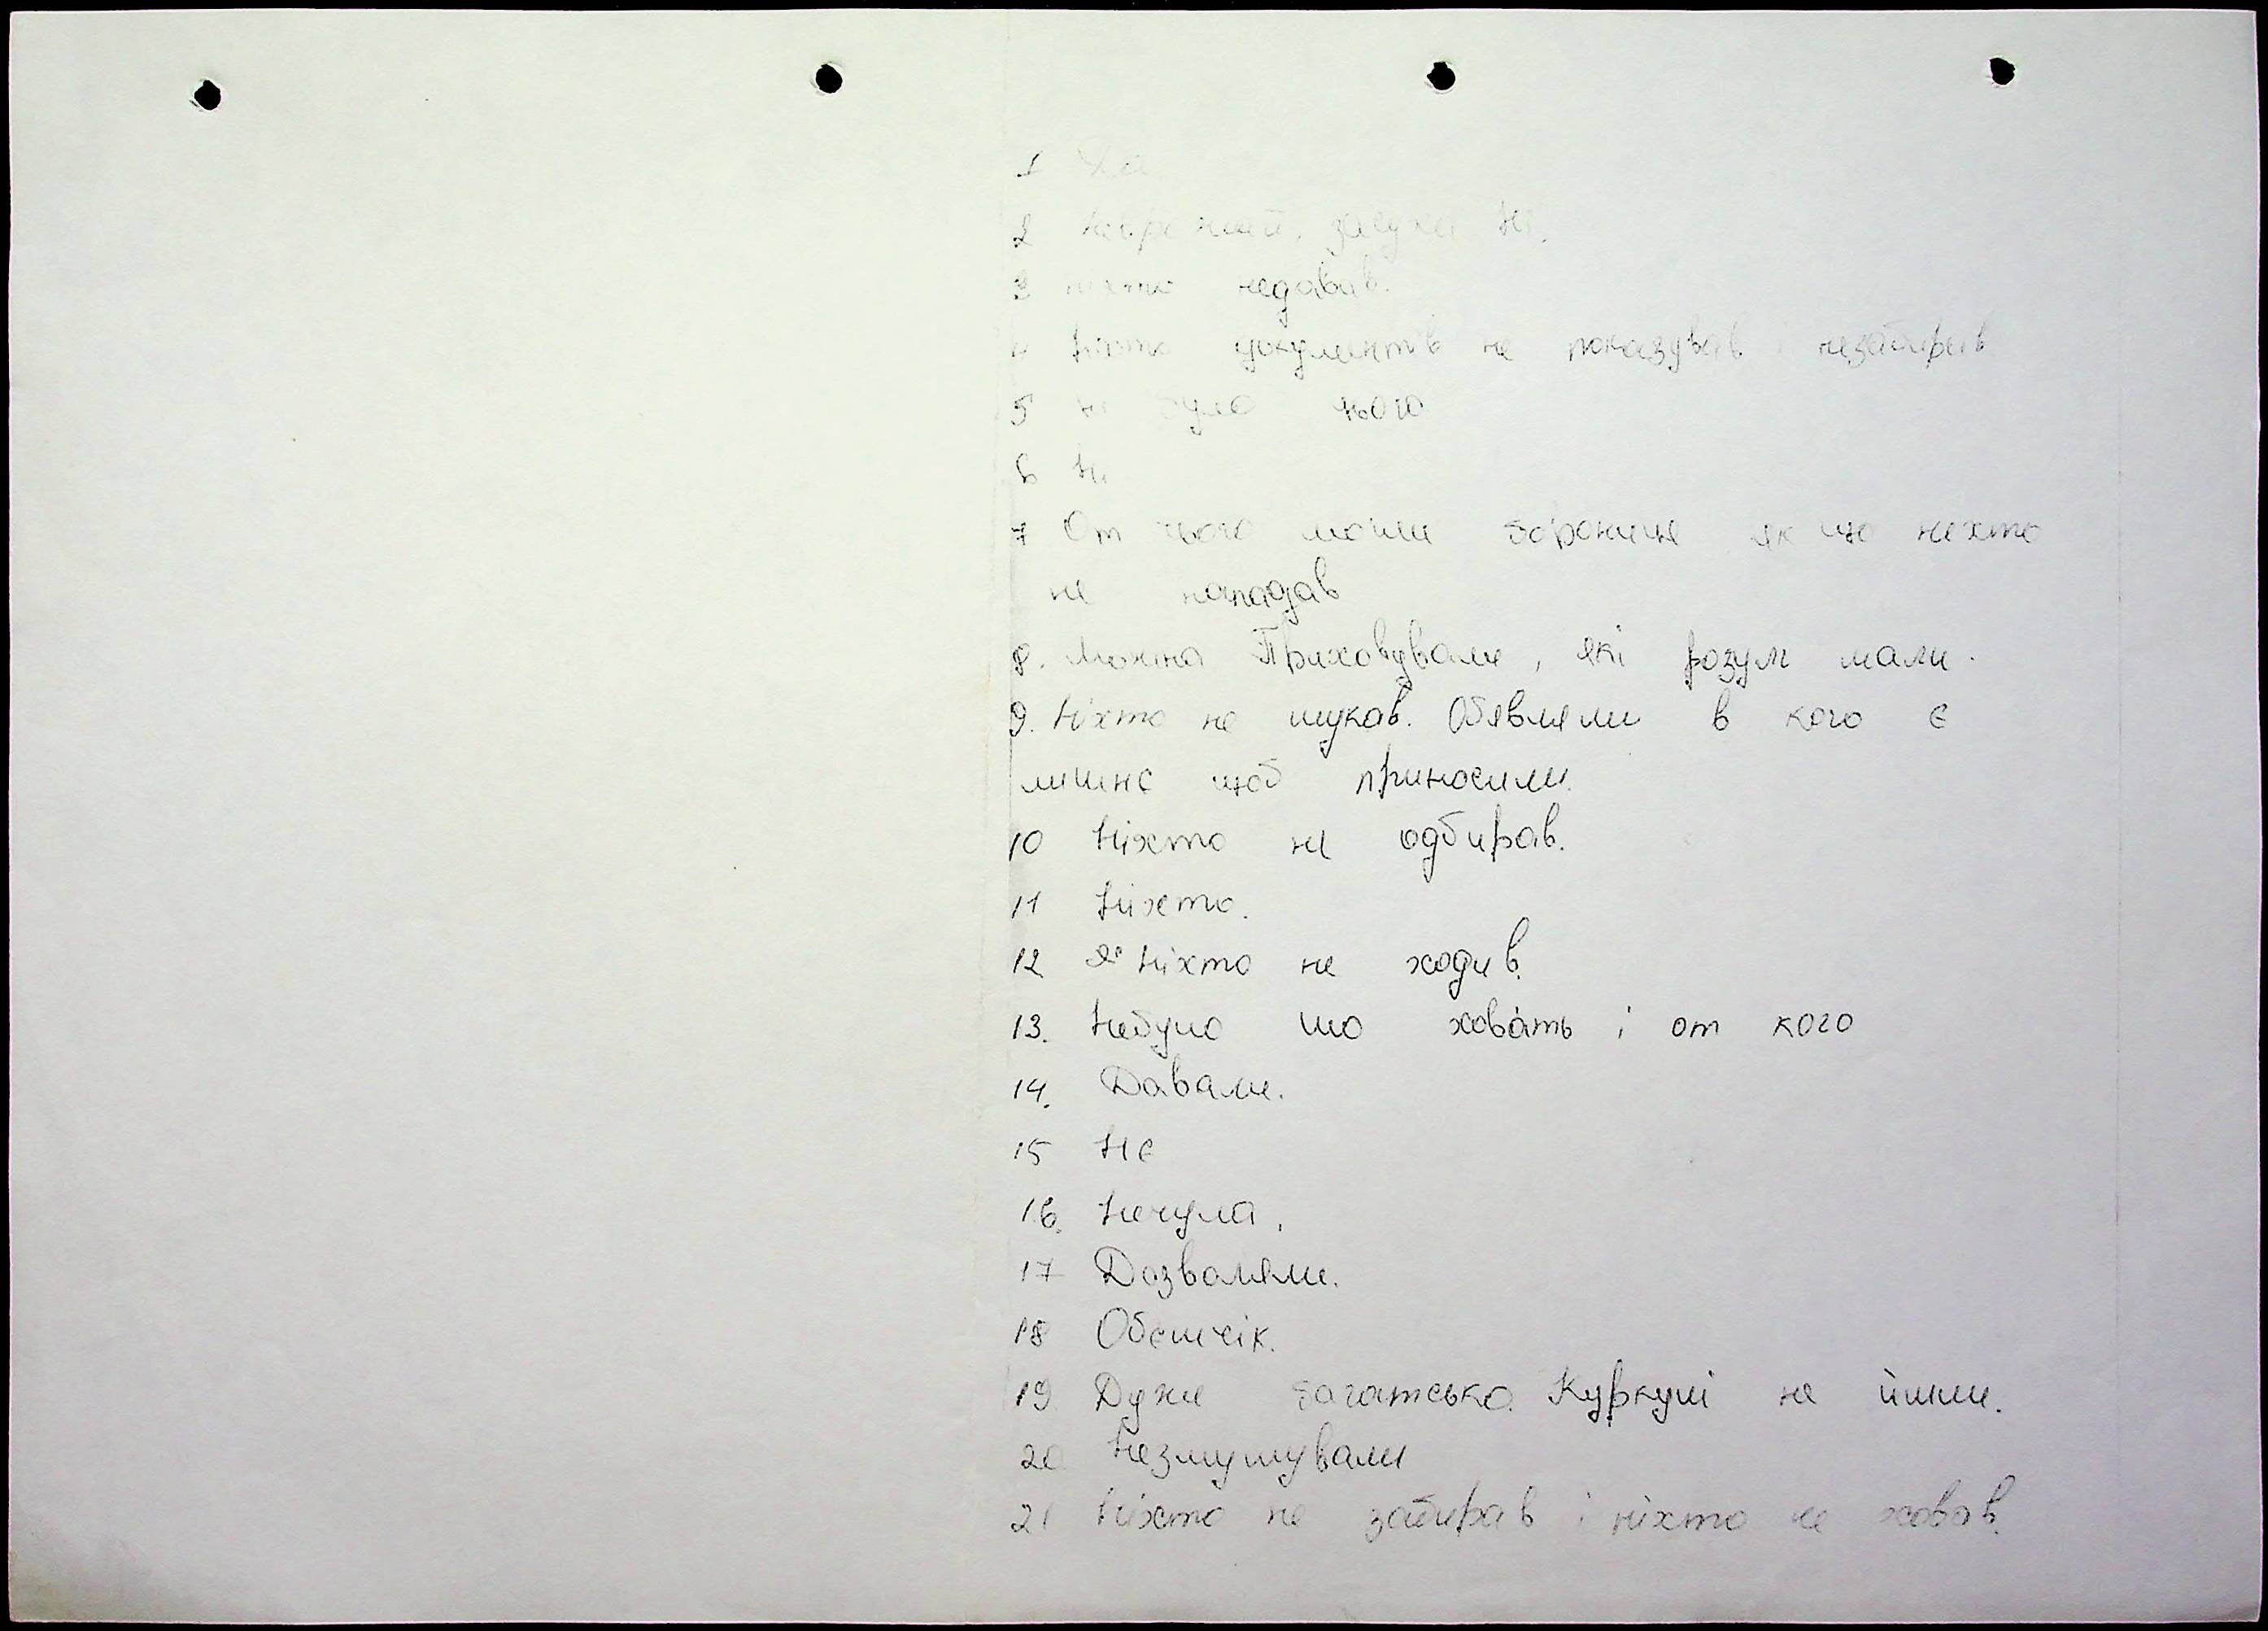 1 Да
2 Неврожай, засуха Ні.
3 ніхто недавав.
4 Ніхто документів не показував і незабирав
5 не було чього
6 Ні
7 От чього мочли боронице як що нехто
не нападав
8. Можна Приховували, які розум мали.
9. Ніхто не шукав. Обявляли в кого є
лишнє щоб приносили.
10 Ніхто не одбирав.
11 Ніхто.
12 Ніхто не ходив.
13. Небуло шо ховать і от кого
14. Давали.
15 Нє
16. Нечула.
17 Дозволяли.
18 Обєшчік.
19 Дуже багатсько. Куркулі не йшли.
20 Незмушували
21 Ніхто не забирав і ніхто не ховав.